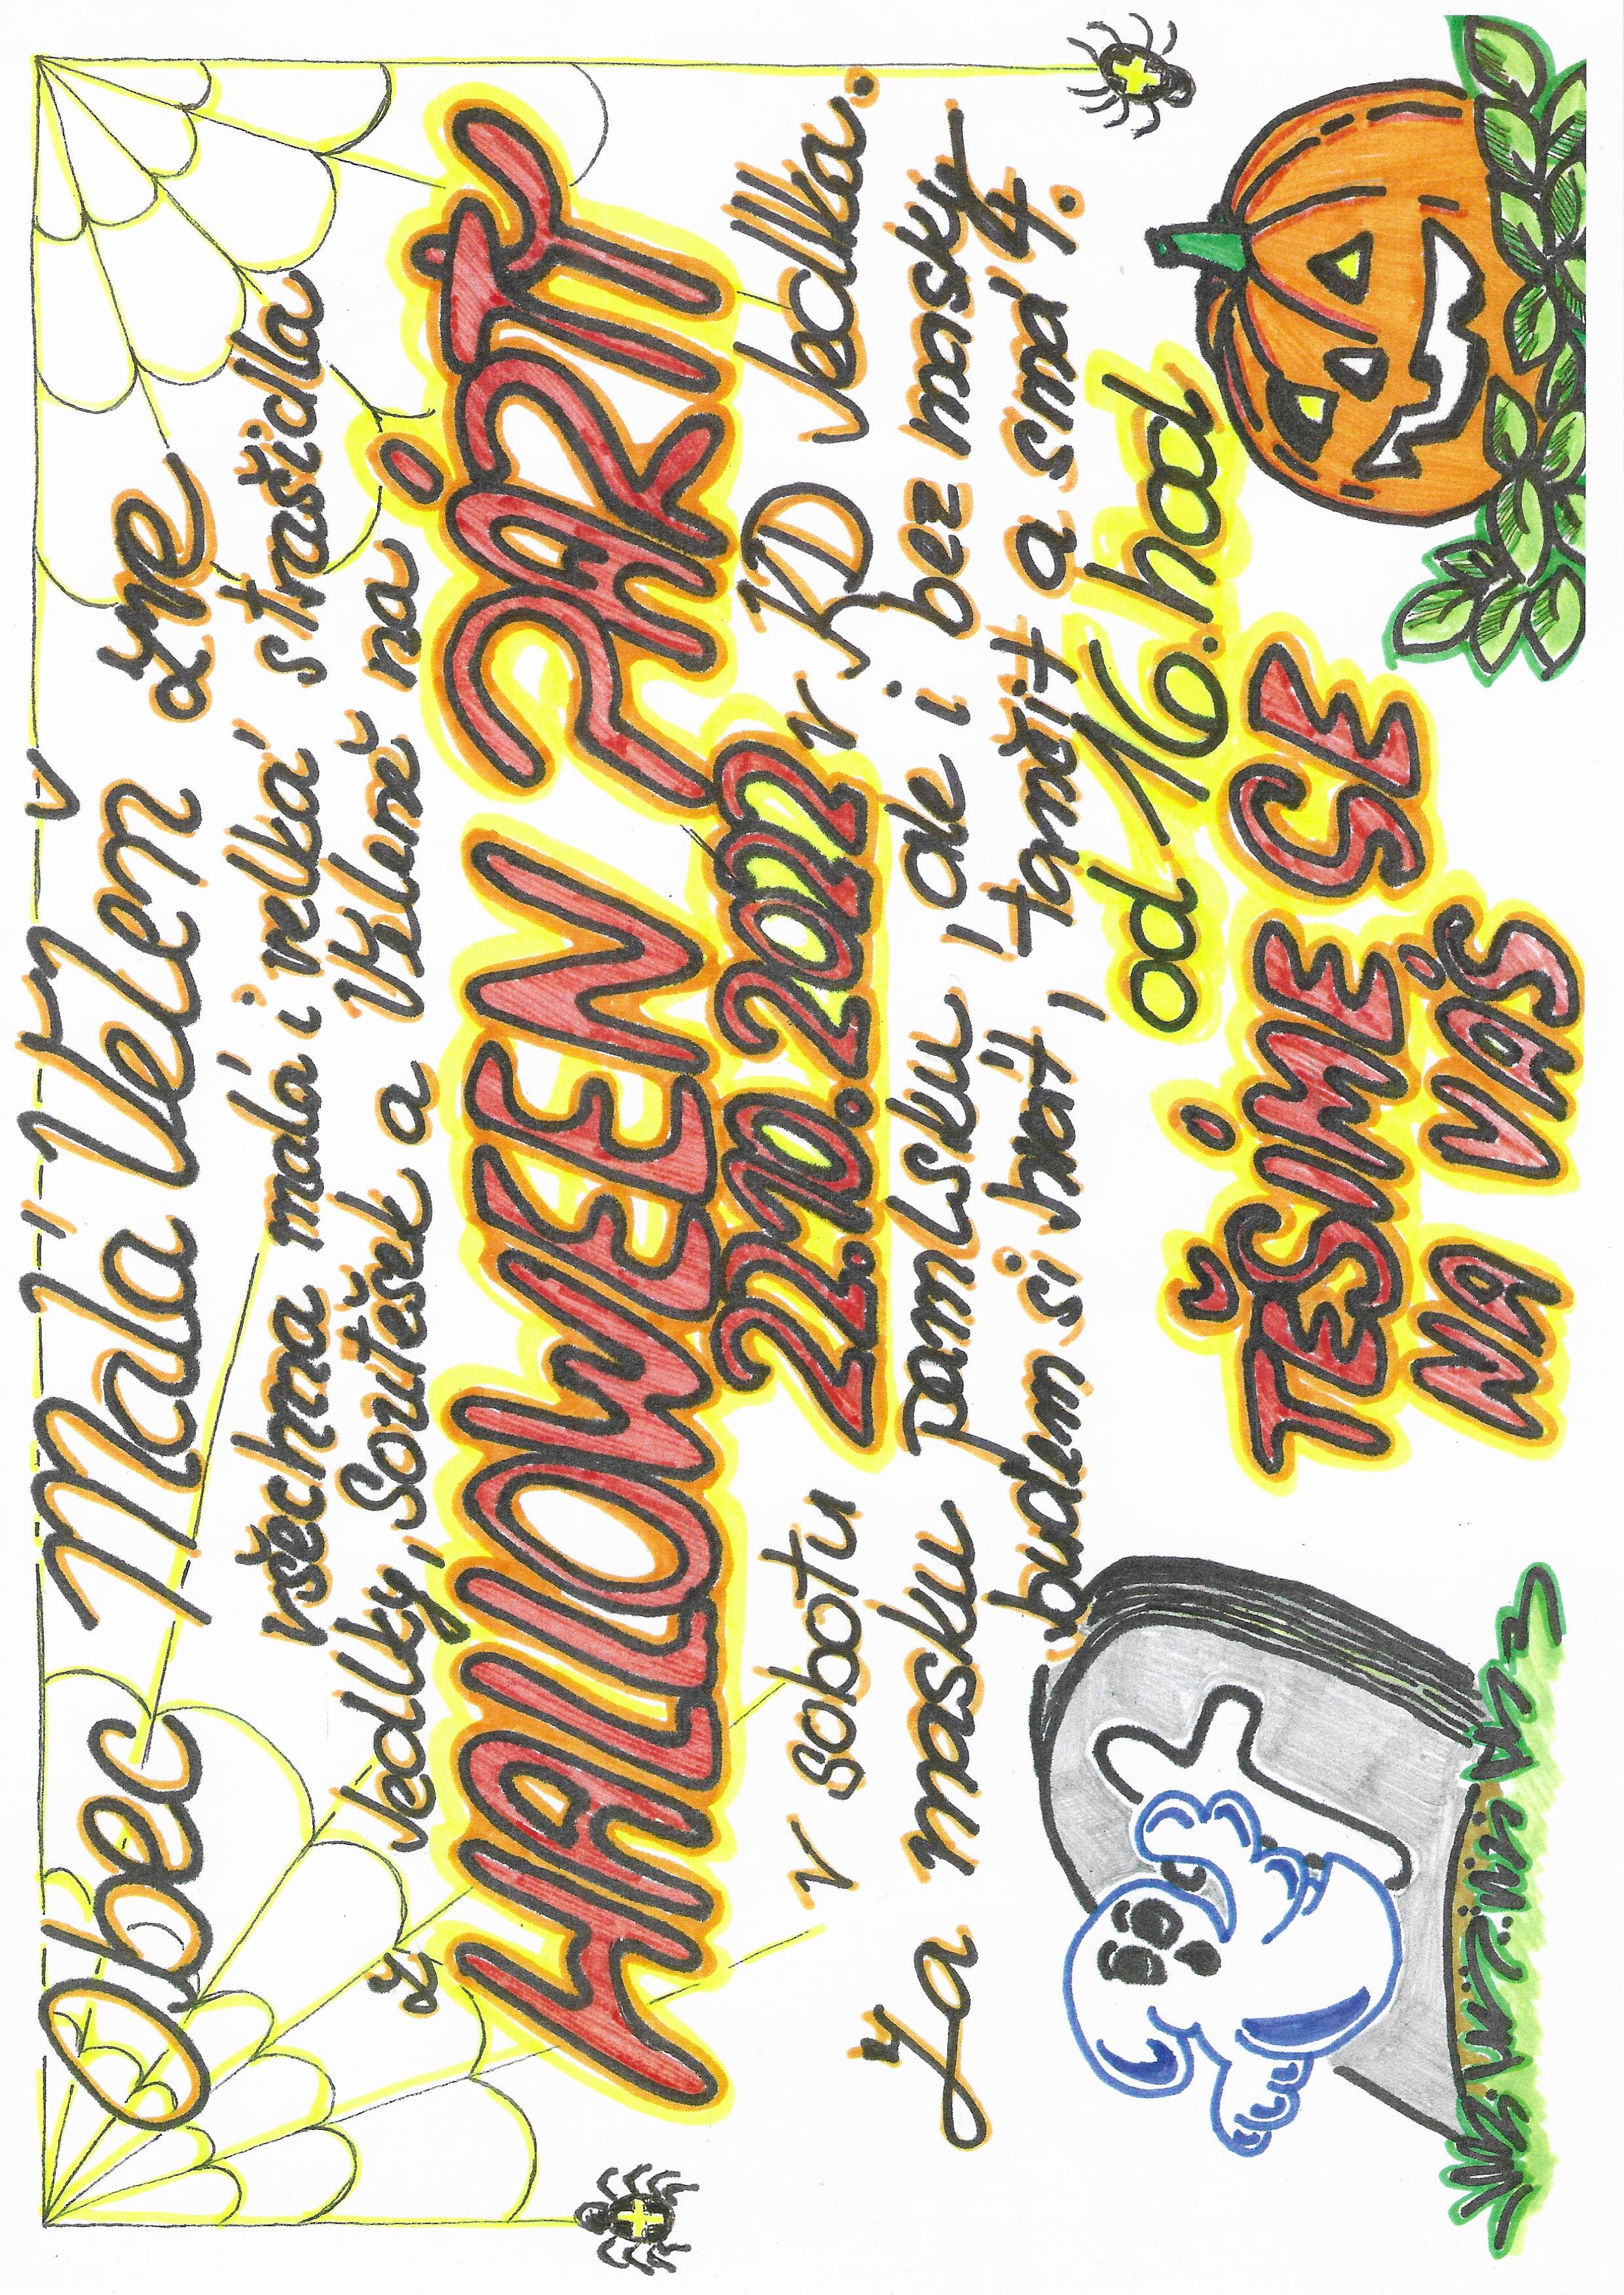 Obec Malá Veleň zve
všechna malá i velká strašidla
z Jedlky, Soutěsek a Veleně na
HALLOWEEN PÁRTY
v sobotu 22.10.2022 v KD Jedlka.
Za masku pamlsku, de i bez masky
budem si hrát, tančit a smát.
od 16.hod
TĚŠÍME SE
NA VÁS